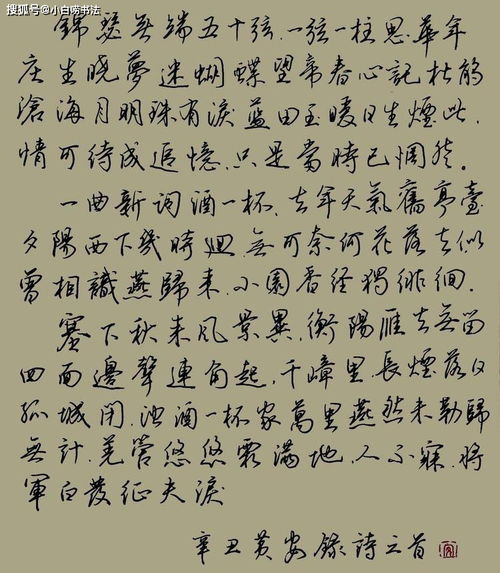 搜狐号@小白唠书法
錦瑟無端五十弦,一弦一柱思華年
庄生晓夢迷蝴蝶望帝春心託杜鹃
滄海月明珠有淚藍田玉暖日生煙此,
情可待成追憶,只是當時已惘然。
一曲新詞酒一杯,去年天氣舊亭臺
夕陽西下幾時迴,無可奈何花落去似
曾相識燕歸来,小園香徑獨徘徊.
塞下秋来风景異,衡陽雁去無留
四面邊聲連角起,千嶂里,長煙落日
孤城閉,浊酒一杯家萬里燕然未勒歸
無計,羌管悠悠霜滿地,人不寐,將
軍白發征夫淚
辛丑黄安錄詩三首